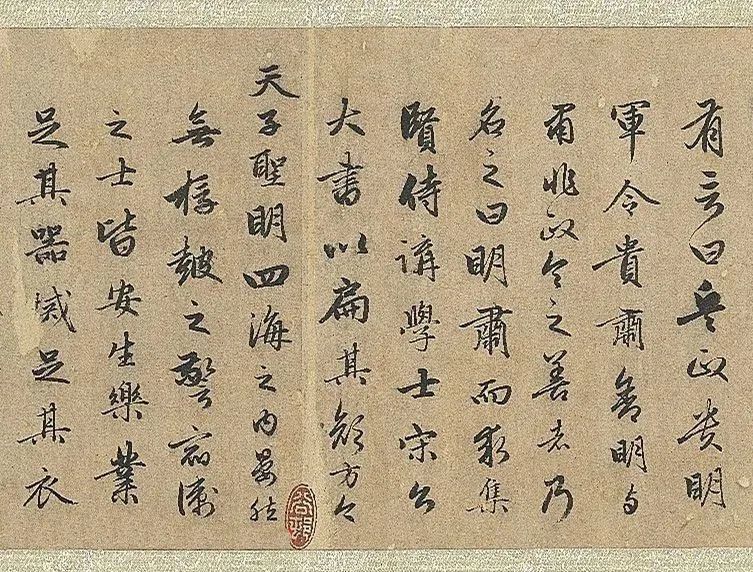 有言曰兵政貴明
軍令貴肅舍明与
肅非政令之善者乃
名之曰明肅而求集
賢侍講學士宋公
大書以扁其顏方今
天子聖明四海之内晏然
無桴皷之警宿衛
之士皆安生樂業
足其器械足其衣